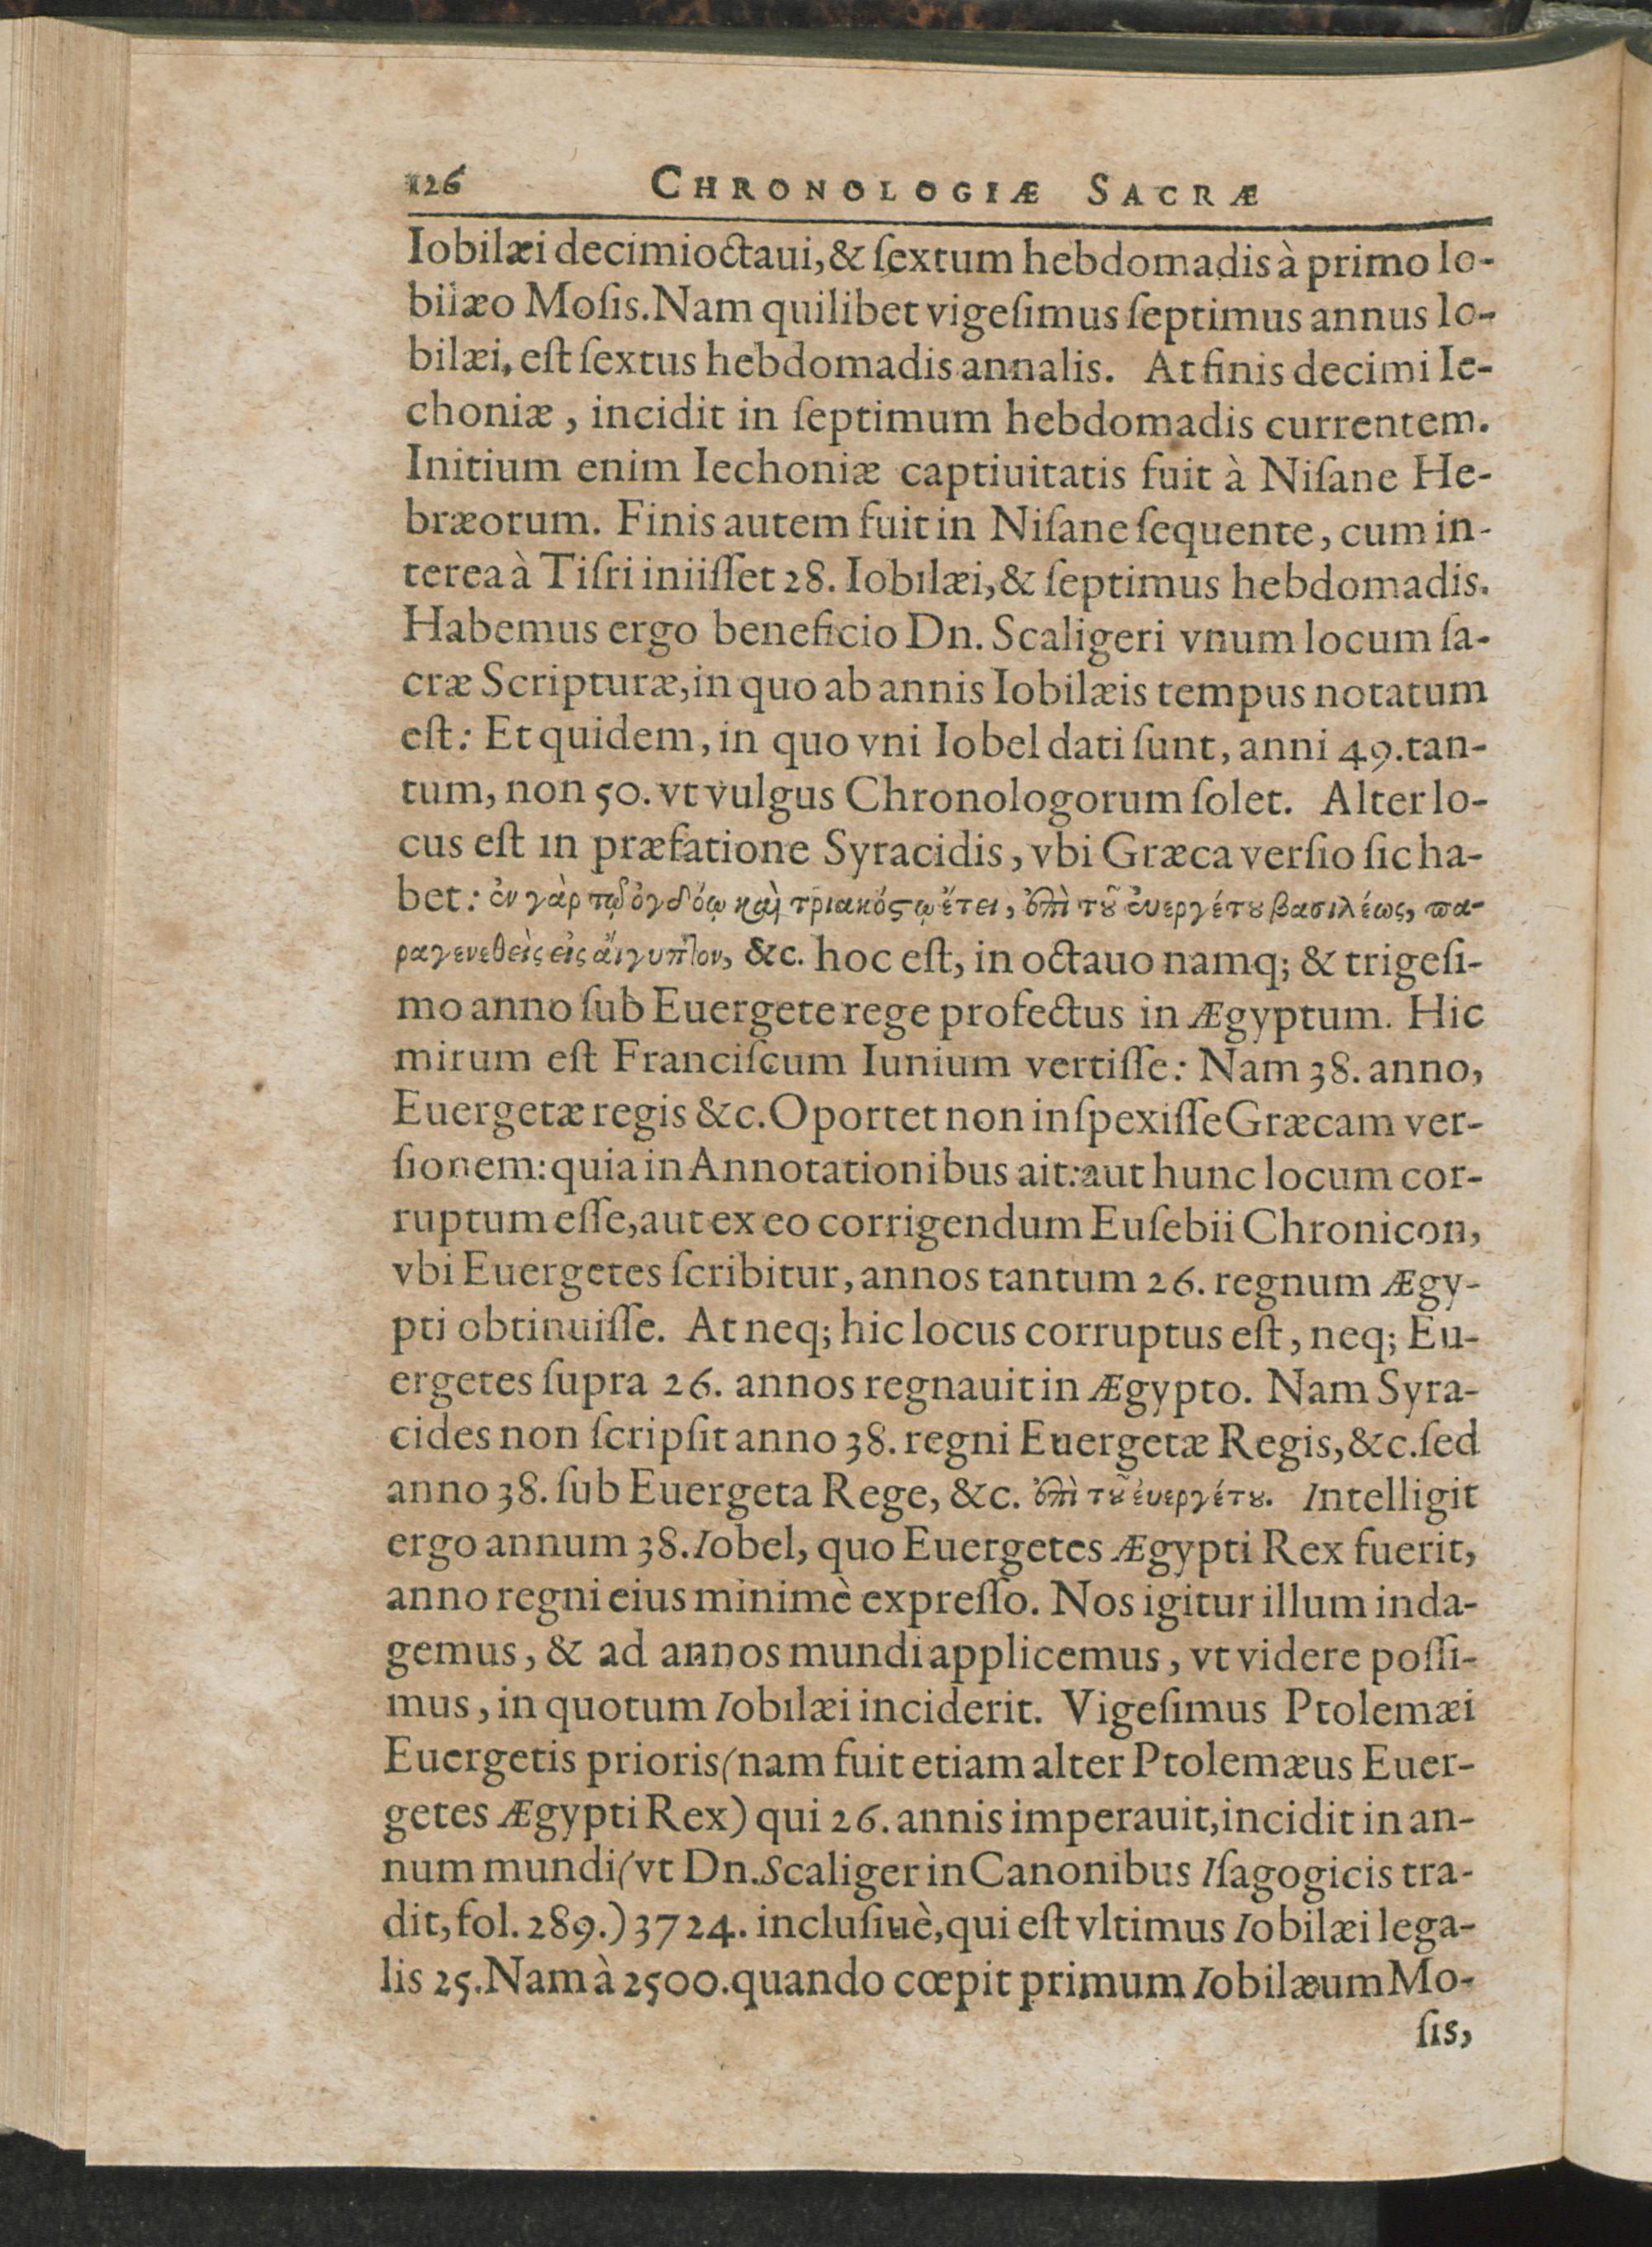 126 CHRONOLOGIÆ SACRÆ
Iobilæi decimioctaui, & ſextum hebdomadis à primo Io-
bilæo Moſis. Nam quilibet vigeſimus ſeptimus annus Io-
bilæi, eſt ſextus hebdomadis annalis. At finis decimi Ie-
choniæ, incidit in ſeptimum hebdomadis currentem.
Initium enim Iechoniæ captiuitatis fuit à Niſane He-
bræorum. Finis autem fuit in Niſane ſequente, cum in-
terea à Tiſri iniiſſet 28. Iobilæi, & ſeptimus hebdomadis.
Habemus ergo beneficio Dn. Scaligeri vnum locum ſa-
cræ Scripturæ, in quo ab annis Iobilæis tempus notatum
eſt: Et quidem, in quo vni Iobel dati ſunt, anni 49. tan-
tum, non 50. vt vulgus Chronologorum ſolet. Alter lo-
cus eſt in præfatione Syracidis, vbi Græca verſio ſic ha-
bet: ἐν γὰρ τῷ ὀγδόῳ καὶ τριακόςῳ ἔτει, ἐπὶ τȣ͂ ἐυεργέτȣ βασιλέως, πα-
ραγενεθεὶς εἰς ἄιγυπτον, &c. hoc eſt, in octauo namq; & trigeſi-
mo anno ſub Euergete rege profectus in Ægyptum. Hic
mirum eſt Franciſcum Iunium vertiſſe: Nam 38. anno,
Euergetæ regis &c. Oportet non inſpexiſſe Græcam ver-
ſionem: quia in Annotationibus ait: aut hunc locum cor-
ruptum eſſe, aut ex eo corrigendum Euſebii Chronicon,
vbi Euergetes ſcribitur, annos tantum 26. regnum Ægy-
pti obtinuiſſe. At neq; hic locus corruptus eſt, neq; Eu-
ergetes ſupra 26. annos regnauit in Ægypto. Nam Syra-
cides non ſcripſit anno 38. regni Euergetæ Regis, &c. ſed
anno 38. ſub Euergeta Rege, &c. ἐπὶ τȣ͂ ἐυεργέτȣ. Intelligit
ergo annum 38. Iobel, quo Euergetes Ægypti Rex fuerit,
anno regni eius minimè expreſſo. Nos igitur illum inda-
gemus, & ad annos mundi applicemus, vt videre poſſi-
mus, in quotum Iobilæi inciderit. Vigeſimus Ptolemæi
Euergetis prioris (nam fuit etiam alter Ptolemæus Euer-
getes Ægypti Rex) qui 26. annis imperauit, incidit in an-
num mundi (vt Dn. Scaliger in Canonibus Iſagogicis tra-
dit, fol. 289.) 3724. incluſiuè, qui eſt vltimus Iobilæi lega-
lis 25. Nam à 2500. quando cœpit primum Iobilæum Mo-
ſis,